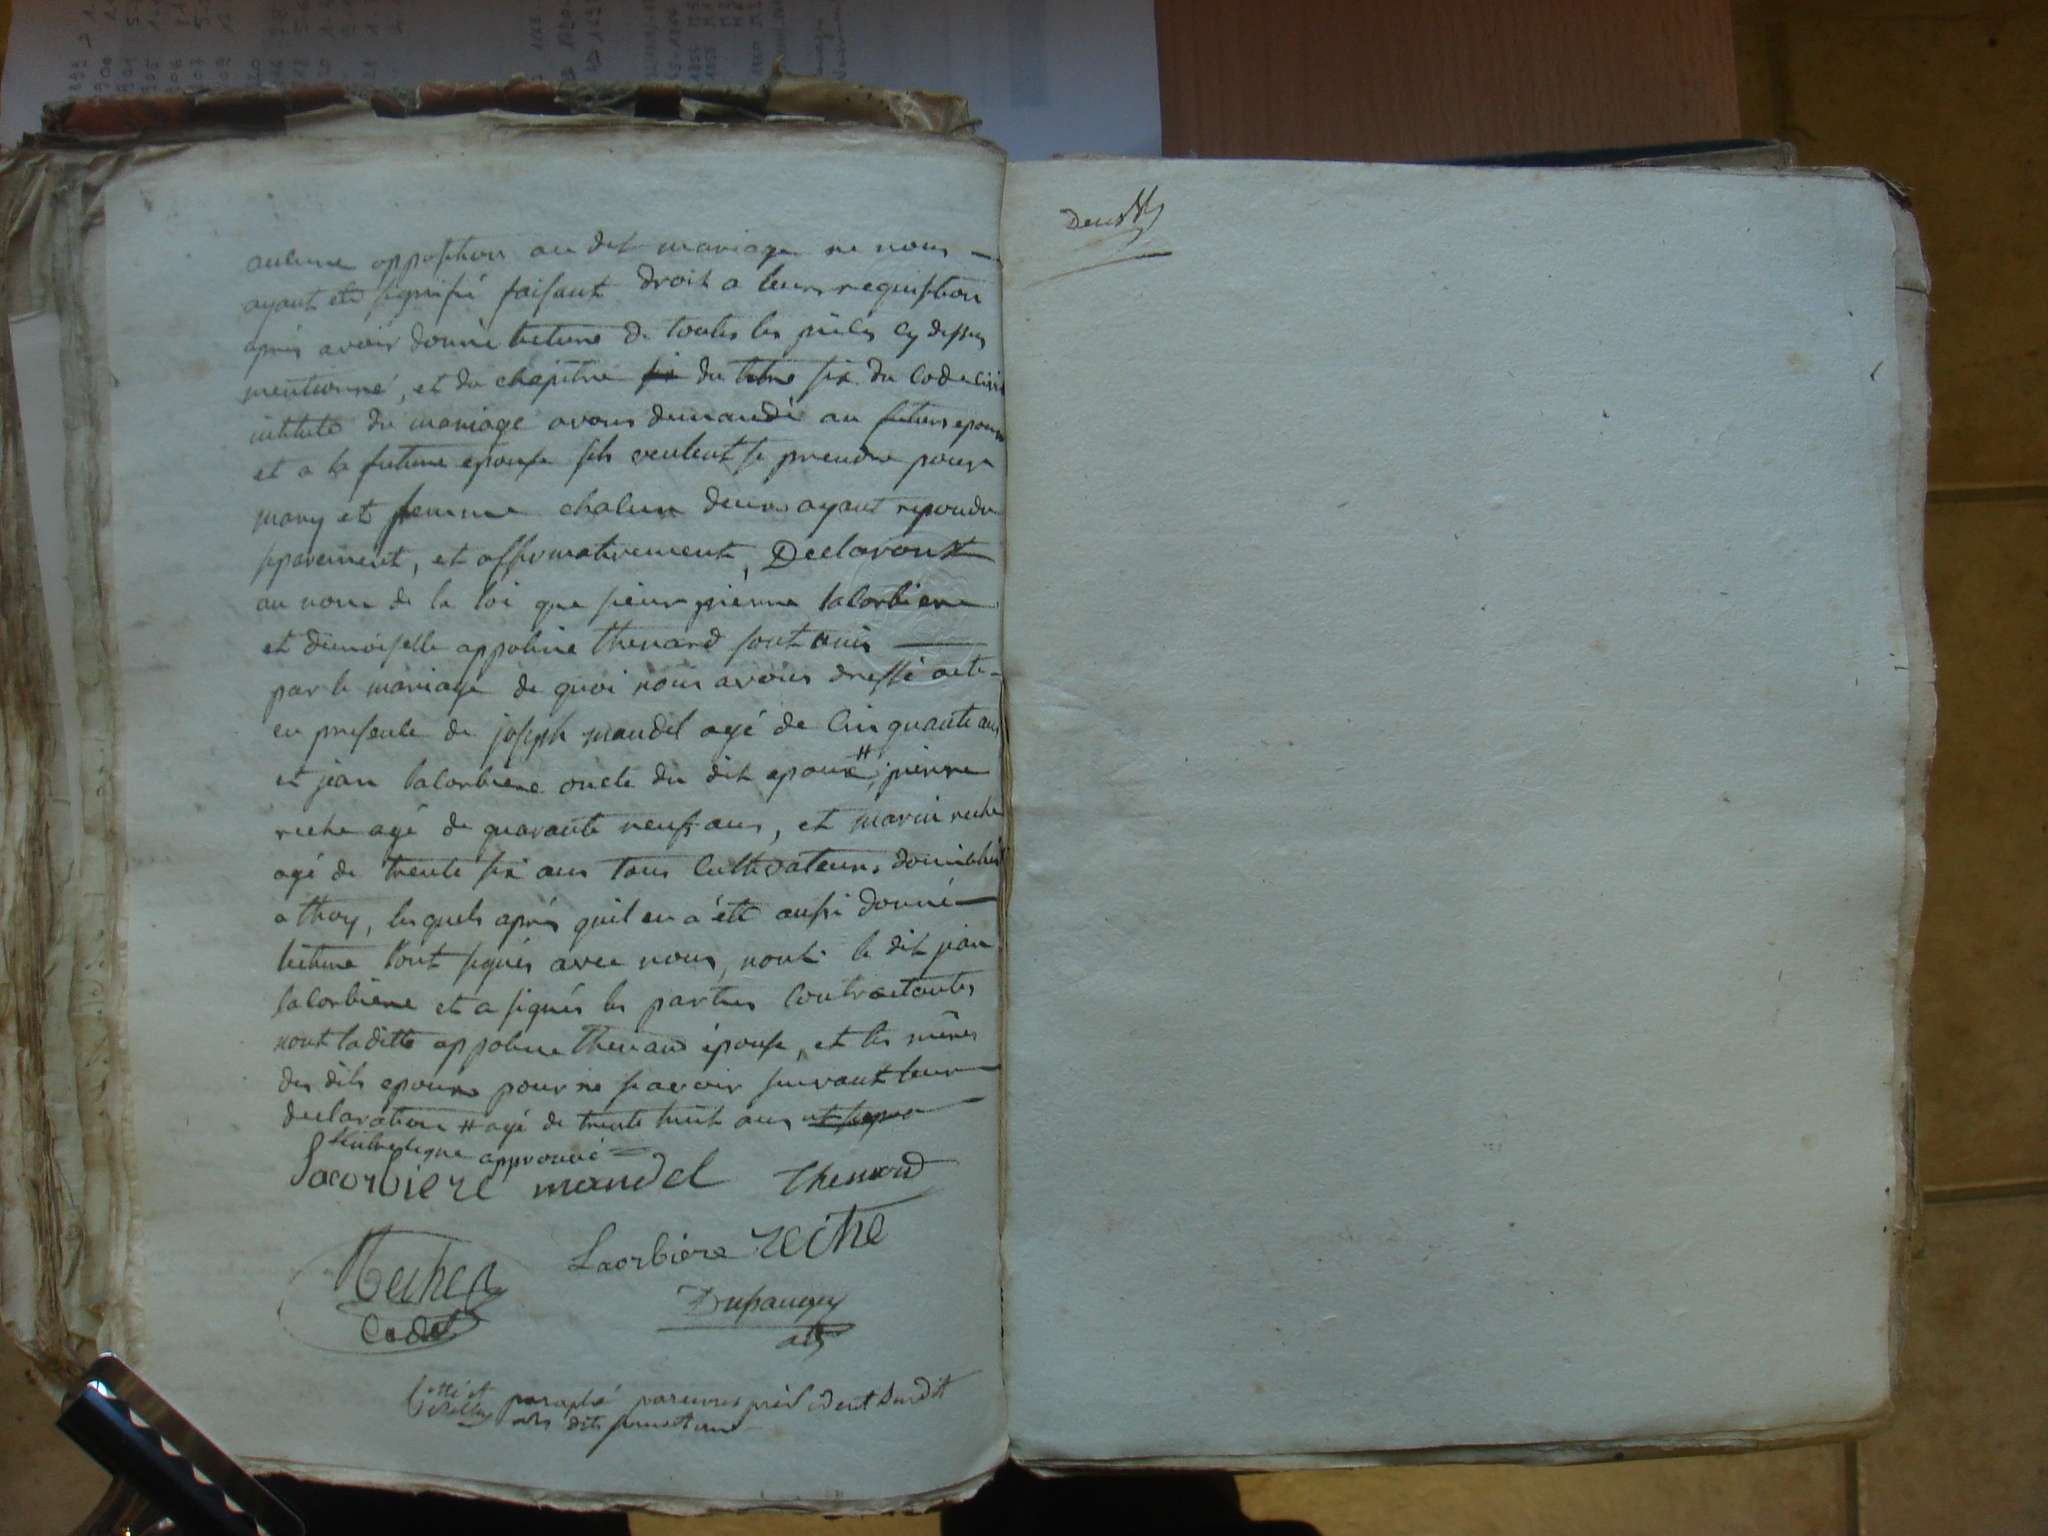 aucune opposition au dit mariage ne nous
ayant eté signifié faisant droit a leurs requisition
après avoir donné lecture de toutes les pièces cy dessus
mentionné, et du chapitre six du titre six du code civil
intitulé du mariage avons demandé au futurs epoux
et a la future epouse sils veulent se prendre pour
mary et femme chacun deux ayant repondu
sparement, et affirmativement, Declarons
au nom de la loi que sieur pierre lacorbiere
et dmoiselle appoline thenard sont unis
par le mariage de quoi nous avons dressé acte
en presence de joseph mandel agé de cinquante ans
et jean lacorbiere oncle du dit epoux #, pierre
reche agé de quarante neuf ans, et marin reche
agé de trente six ans tous cultivateurs domiciliés
a thoy, lesquels après quil en a été aussi donné
lecture l'ont signés avec nous, nont le dit jean
lacorbiere et a signés les parties contractantes
nont laditte appoline thenard épouse, et les mères
des dits epoux pour ne scavoir suivant leur
declaration # agé de trente huit ans
l'entreligne approuvé
Lacorbiere mandel thenard
Lacorbiere reche
Reche
paraphé par nous président